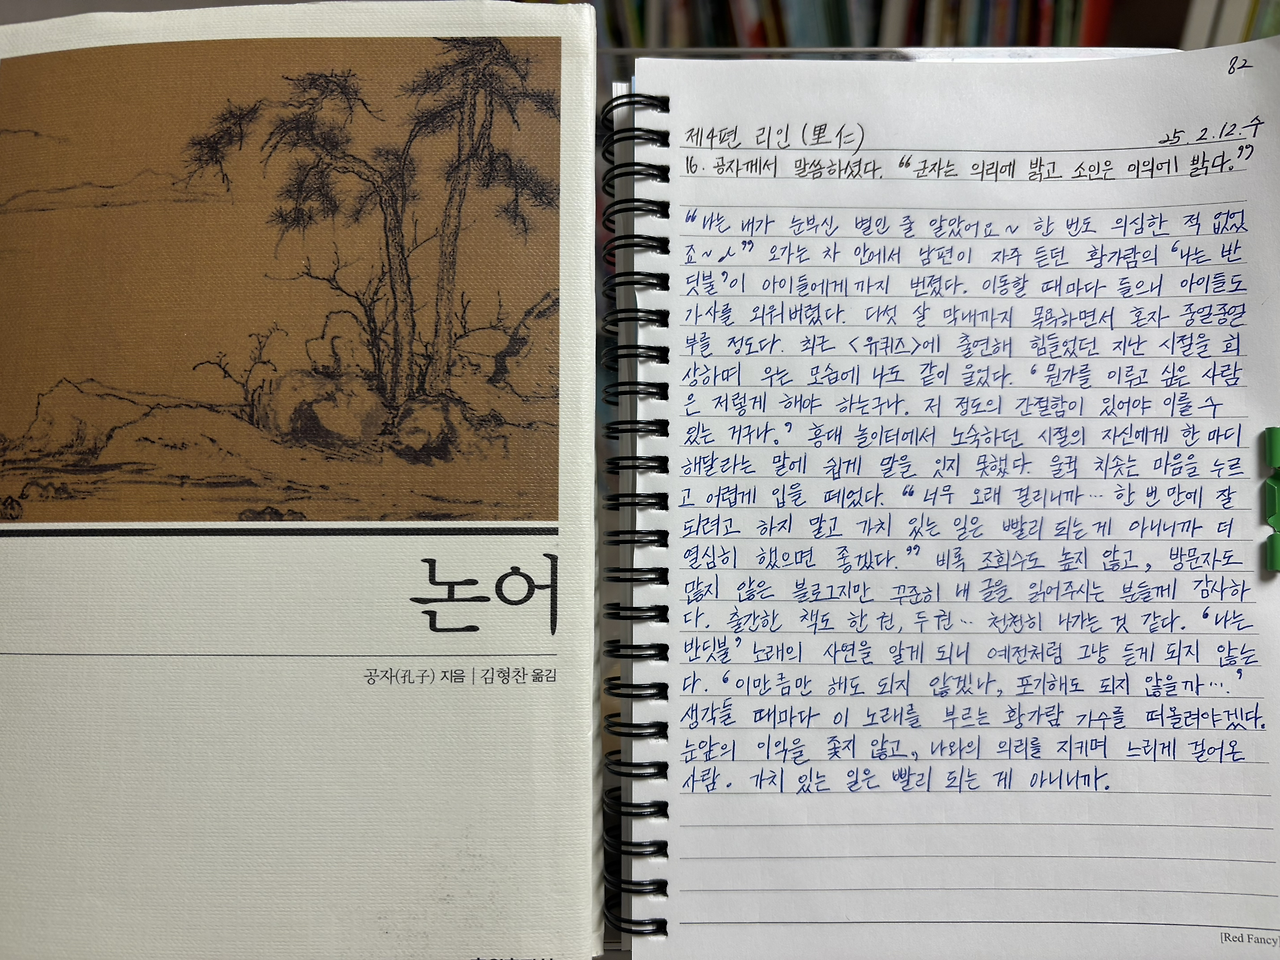 논어
공자(孔子) 지음 | 김형찬 옮김
82
제4편 리인 (里仁)
25. 2. 12. 수
16. 공자께서 말씀하셨다. “군자는 의리에 밝고 소인은 이익에 밝다.”
“나는 내가 눈부신 별인 줄 알았어요~ 한 번도 의심한 적 없었
죠~♪” 오가는 차 안에서 남편이 자주 듣던 황가람의 ‘나는 반
딧불’이 아이들에게까지 번졌다. 이동할 때마다 들으니 아이들도
가사를 외워버렸다. 다섯 살 막내까지 목욕하면서 혼자 중얼중얼
부를 정도다. 최근 <유퀴즈>에 출연해 힘들었던 지난 시절을 회
상하며 우는 모습에 나도 같이 울었다. ‘뭔가를 이루고 싶은 사람
은 저렇게 해야 하는구나. 저 정도의 간절함이 있어야 이룰 수
있는 거구나.’ 홍대 놀이터에서 노숙하던 시절의 자신에게 한 마디
해달라는 말에 쉽게 말을 잇지 못했다. 울컥 치솟는 마음을 누르
고 어렵게 입을 떼었다. “너무 오래 걸리니까… 한 번 만에 잘
되려고 하지 말고 가치 있는 일은 빨리 되는 게 아니니까 더
열심히 했으면 좋겠다.” 비록 조회수도 높지 않고, 방문자도
많지 않은 블로그지만 꾸준히 내 글을 읽어주시는 분들께 감사하
다. 출간한 책도 한 권, 두 권… 천천히 나가는 것 같다. ‘나는
반딧불’ 노래의 사연을 알게 되니 예전처럼 그냥 듣게 되지 않는
다. ‘이만큼만 해도 되지 않겠나, 포기해도 되지 않을까….’
생각들 때마다 이 노래를 부르는 황가람 가수를 떠올려야겠다.
눈앞의 이익을 좇지 않고, 나와의 의리를 지키며 느리게 걸어온
사람. 가치 있는 일은 빨리 되는 게 아니니까.
[Red Fancy]